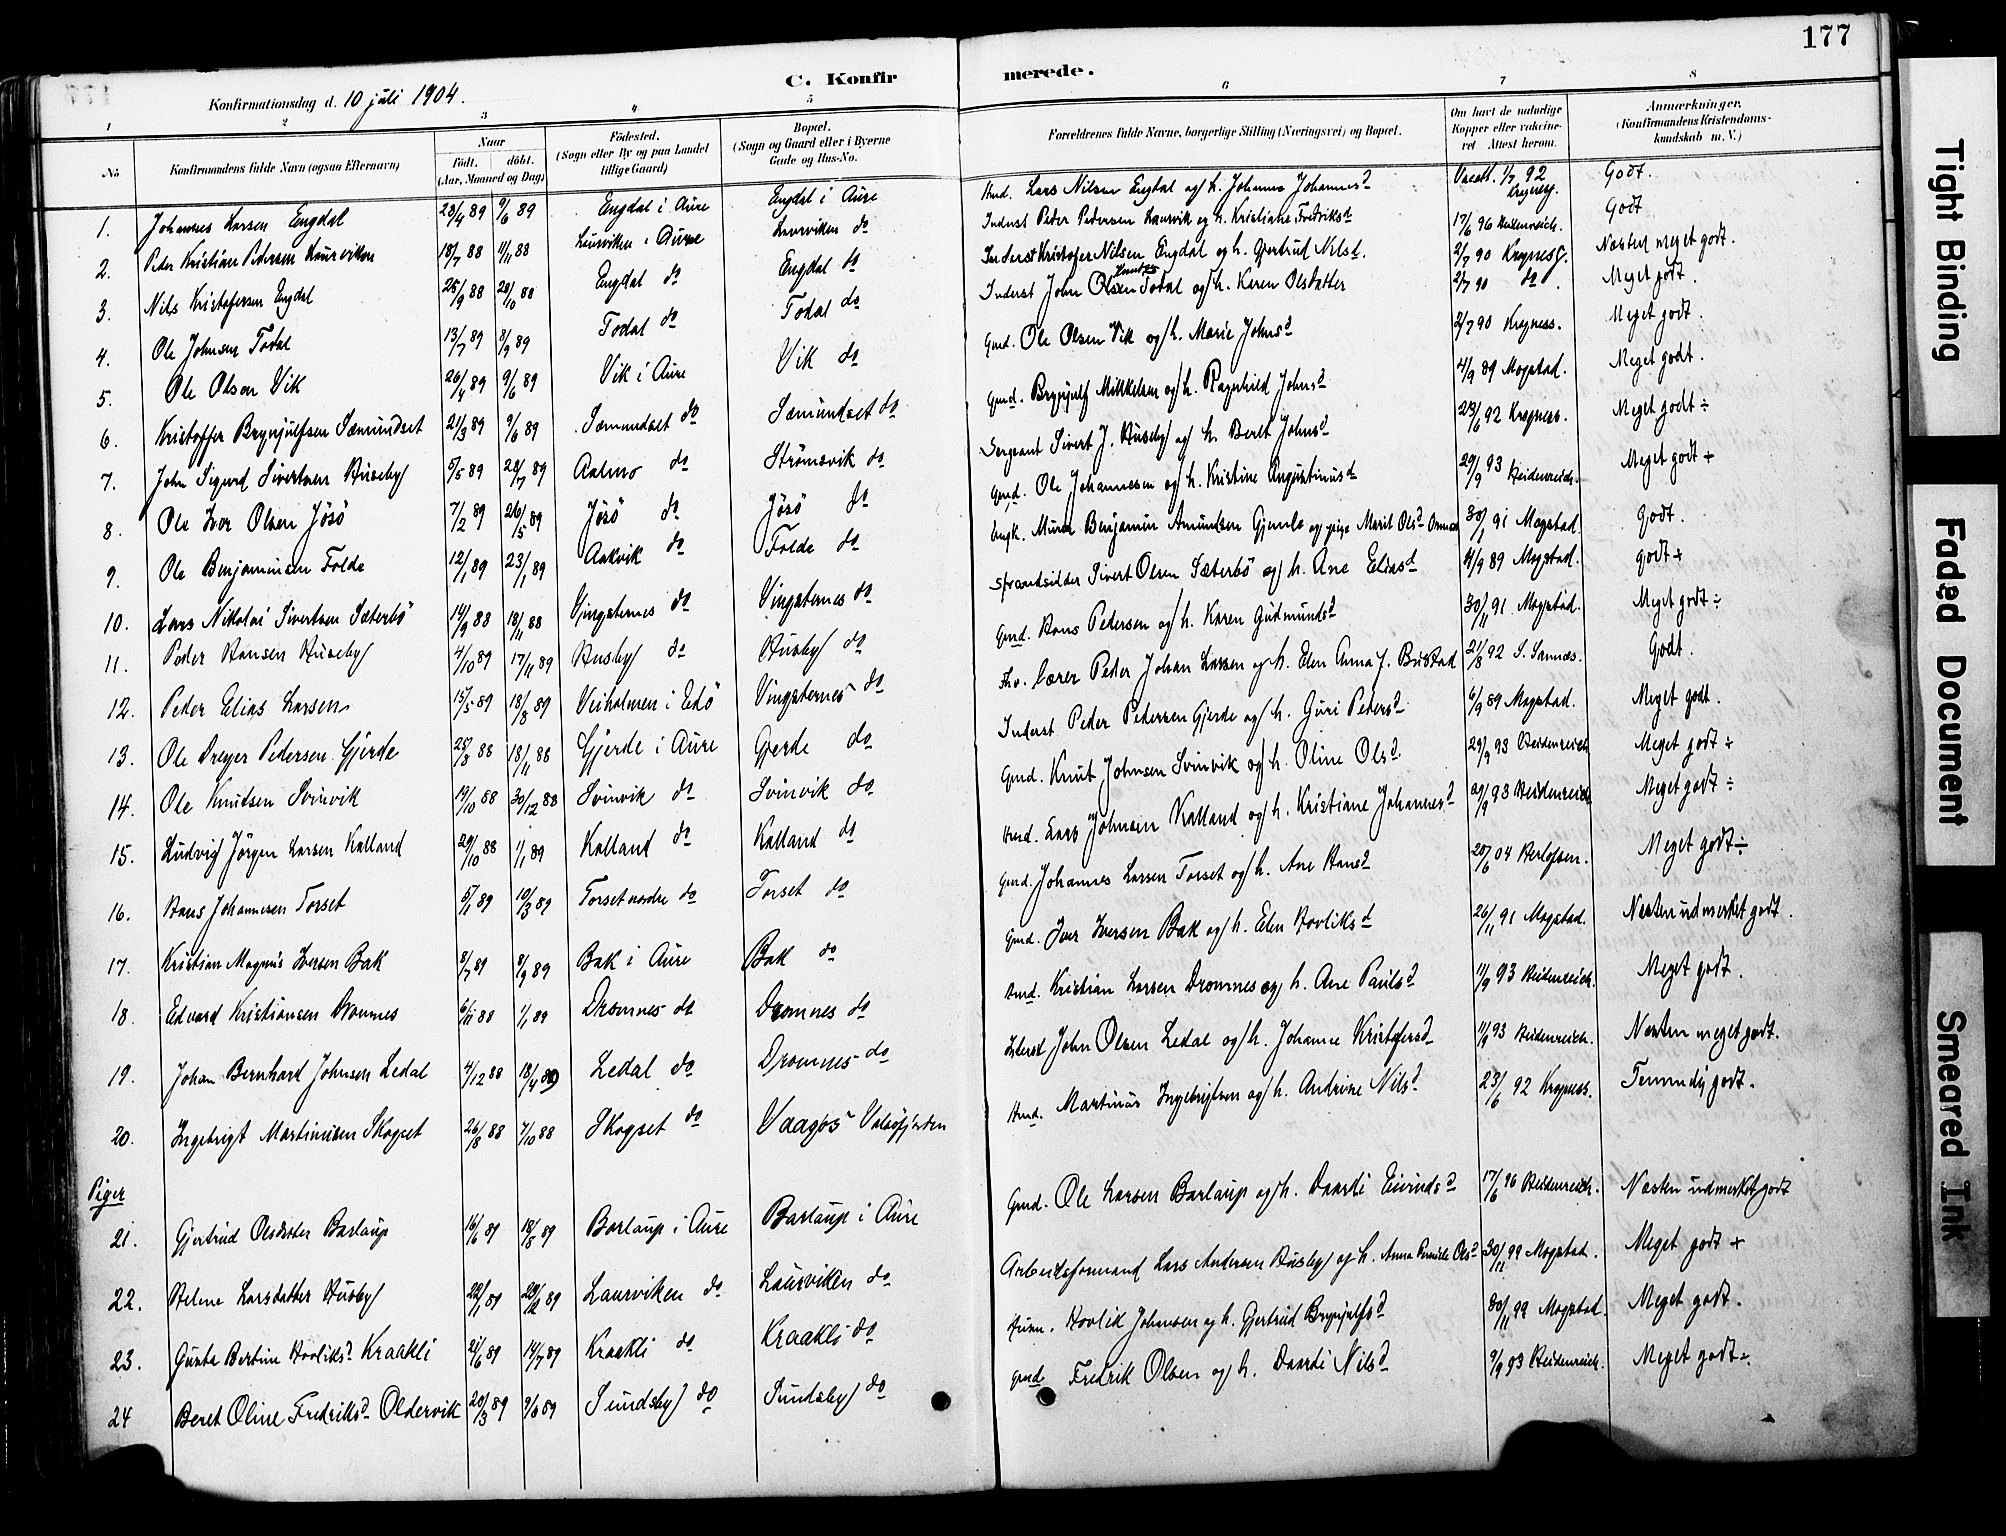 177
C. Konfirmerede.
Konfirmationsdag d. 10 juli 1904.
1 2 3 4 5 6 7 8
No
Konfirmandens fulde Navn (ogsaa Efternavn)
Naar
Födt. döbt.
(Aar, Maaned og Dag)
Födested.
(Sogn eller By og paa Landet
tillige Gaard)
Bopæl.
(Sogn og Gaard eller i Byerne
Gade og Hus-No.
Forældrenes fulde Navne, borgerlige Stilling (Næringsvei) og Bopæl.
Om havt de naturlige
Kopper eller vaccine-
ret Attest herom.
Anmærkninger,
(Konfirmandens Kristendoms-
kundskab m. V.)
1. Johannes Larsen Engdal 23/4 89 9/6 89 Engdal i Aure Engdal i Aure Lars Nilsen Engdal og h. Johanna Johannesd Vacatt. 1/7 92 Krogness. Godt.
2. Peder Kristian Pedersen Laurviken 18/7 88 11/11 88 Laurviken i Aure Laurviken do Inderst Peder Pedersen Laurvik og h. Kristiane Fredriksd 17/6 96 Heidenreich. Godt
3. Nils Kristofersen Engdal 25/9 88 28/10 88 Engdal do Engdal do Inderst Kristofer Nilsen Engdal og h. Gjertrud Nilsd. 2/7 90 Krogness. Næsten meget godt.
4. Ole Johnsen Todal 13/7 89 8/9 89 Todal do Todal do Inderst John Olsen Todal og h. Karen Olsdatter 2/7 90 do. Meget godt.
5. Ole Olsen Vik 26/4 89 9/6 89 Vik i Aure Vik do Gmd. Ole Olsen Vik og h. Marie Johnsd 2/7 90 Krogness. Meget godt.
6. Kristoffer Brynjulfsen Sæmundset 21/3 89 9/6 89 Sæmundset do Sæmundset do Gmd. Brynjulf Mikkelsen og h. Ragnhild Johnsd 4/9 89 Mogstad. Meget godt.
7. John Sigurd Sivertsen Huseby 5/5 89 28/7 89 Aalmo do Strömsvik do Sergeant Sivert J. Huseby og h. Beret Johnsd 23/6 92 Krogness. Meget godt ÷
8. Ole Iver Olsen Jösö 7/2 89 26/5 89 Jösö do Jösö do Gmd. Ole Johannessen og h. Kristine Augustinusd 29/9 93 Heidenreich. Meget godt +
9. Ole Benjaminsen Folde 12/1 89 23/1 89 Aakvik do Folde do Ungk. Murer Benjamin Amundsen Gjemlo og pige Marit Olsd 30/1 91 Mogstad. Godt.
10. Lars Nikolai Sivertsen Sæterbö 14/9 88 18/11 88 Vingsternes do Vingsternes do Strandsidder Sivert Olsen Sæterbö og h. Ane Eliasd 4/9 89 Mogstad. godt +
11. Peder Hansen Huseby 4/10 89 17/11 89 Husby do Husby do Gmd. Hans Pedersen og h. Karen Gudmundsd 30/11 91 Mogstad. Meget godt ÷
12. Peder Elias Larsen 15/5 89 18/8 89 Veiholmen i Edö Vingsternes do Fhv. lærer Peder Johan Larsen og h. Elen Anna J. Bustad 21/8 92 S. Sannes. Godt.
13. Ole Dreyer Pedersen Gjerde 25/8 88 18/11 88 Gjerde i Aure Gjerde do Inderst Peder Pedersen Gjerde og h. Guri Pedersd 6/9 89 Mogstad. Meget godt.
14. Ole Knudsen Svinvik 14/10 88 30/12 88 Svinvik do Svinvik do Gmd. Knut Johnsen Svinvik og h. Oline Olsd. 29/9 93 Heidenreich Meget godt ÷
15. Ludvig Jörgen Larsen Kalland 29/10 88 1/1 89 Kalland do Kalland do Lars Johnsen Kalland og h. Kristiane Johannesd 29/9 93 Heidenreich Meget godt ÷
16. Hans Johannesen Torset 5/1 89 10/3 89 Torset nordre do Torset do Gmd. Johannes Larsen Torset og h. Ane Hansd 20/6 04 Herlofsen. Meget godt ÷
17. Kristian Magnus Iversen Bak 8/7 89 8/9 89 Bak i Aure Bak do Gmd. Iver Iversen Bak og h. Elen Hovliksd 26/11 91 Mogstad. Næsten udmerket godt.
18. Edvard Kristiansen Dromnes 6/11 88 1/1 89 Dromnes do Dromnes do Kristian Larsen Dromnes og h. Ane Paulsd 11/9 93 Heidenreich. Meget godt.
19. Johan Bernhard Johnsen Ledal 4/12 88 18/4 89 Ledal do Dromnes do Inderst John Olsen Ledal og h. Johanne Kristofersd 11/9 93 Heidenreich. Næsten meget godt.
20. Ingebrigt Martinusen Skogset 26/8 88 7/10 88 Skogset do Vaagos Valsöfjorden Martinus Ingebrigtsen og h. Andrine Nilsd 23/6 92 Krogness. Temmelig godt.
Piger
21. Gjertrud Olsdatter Barlaup 16/6 89 18/8 89 Barlaup i Aure Barlaup i Aure Gmd. Ole Larsen Barlaup og h. Daardi Eivindsd 17/6 96 Heidenreich. Næsten udmerket godt
22. Helene Larsdatter Husby 22/1 89 29/12 89 Laurviken do Laurviken do Arbeidsformand Lars Andersen Husby og h. Anna Olsd 30/11 99 Mogstad. Meget godt +
23. Gusta Bertine Hovliksd Kraakli 21/6 89 14/7 89 Kraakli do Kraakli do Husm. Hovlik Johansen og h. Gjertrud Brynjulfsd 30/11 99 Mogstad. Meget godt.
24 Beret Oline Fredriksd Oldervik 20/3 89 9/6 89 Sundsby do Sundsby do gmd Fredrik Olsen og h. Daardi Nilsd 9/9 93 Heidenreich. Meget godt ÷
Tight Binding
Faded Document
Smeared Ink